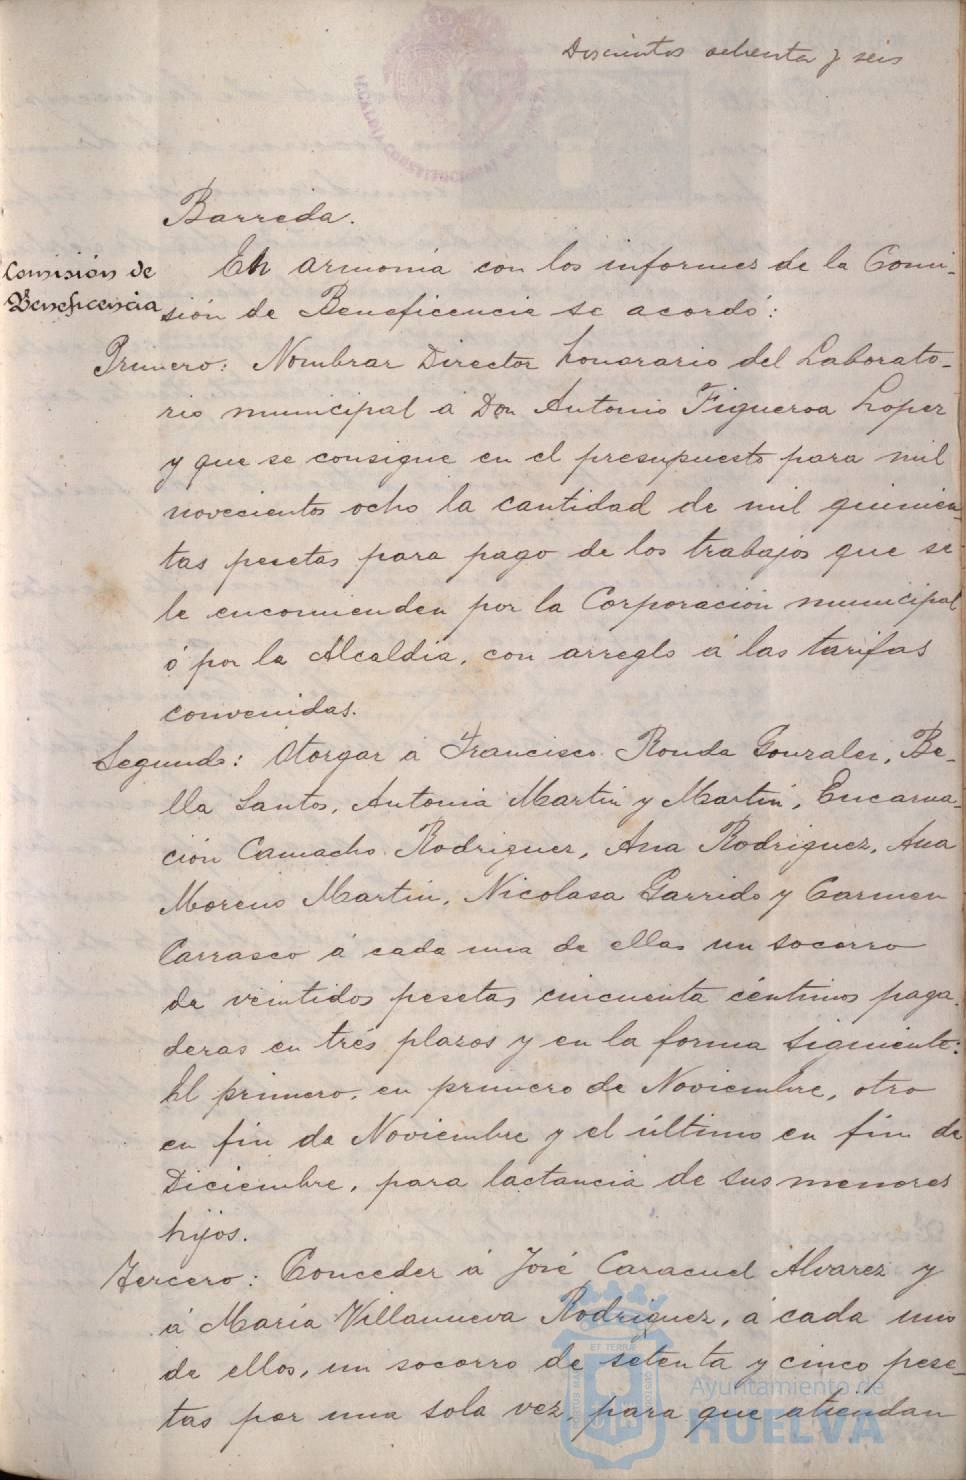 Doscientos ochenta y seis
Barreda.
Comisión de
Beneficencia
En armonia con los informes de la Comi-
sión de Beneficencia se acordó:
Primero: Nombrar Director honorario del Laborato-
rio municipal á Don Antonio Figueroa Lopez
y que se consigne en el presupuesto para mil
novecientos ocho la cantidad de mil quinien-
tas pesetas para pago de los trabajos que se
le encomienden por la Corporación municipal
ó por la Alcaldia, con arreglo á las tarifas
convenidas.
Segundo: Otorgar á Francisca Ronda Gonzalez, Be-
lla Santos, Antonia Martin y Martin, Encarna-
ción Camacho Rodriguez, Ana Rodriguez, Ana
Moreno Martin, Nicolasa Garrido y Carmen
Carrasco á cada una de ellas un socorro
de veintidos pesetas cincuenta céntimos paga-
deras en trés plazos y en la forma siguiente:
El primero, en primero de Noviembre, otro
en fin de Noviembre y el último en fin de
Diciembre, para lactancia de sus menores
hijos.
Tercero: Conceder á José Caracuel Alvarez y
á Maria Villanueva Rodriguez, á cada uno
de ellos, un socorro de setenta y cinco pese-
tas por una sola vez, para que atiendan
Ayuntamiento de
HUELVA